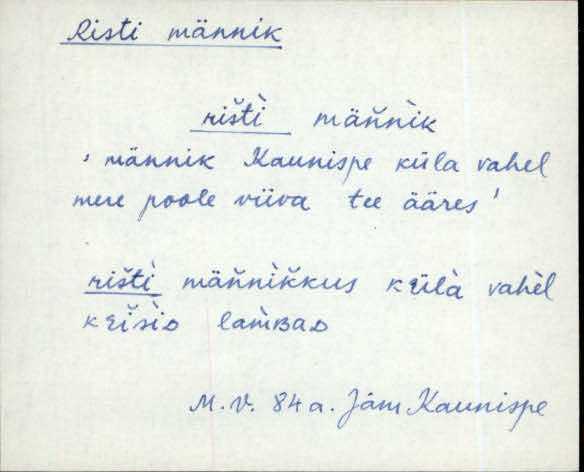 Risti männik
rišti̇̀ mäňni̇̀k
' männik Kaunispe küla vahel
mere poole viiva tee ääres '
rišti̇̀ mäňni̇̀ǩkus külà vahèl
keišiD lam̀BaD
M. V. 84 a. Jäm Kaunispe